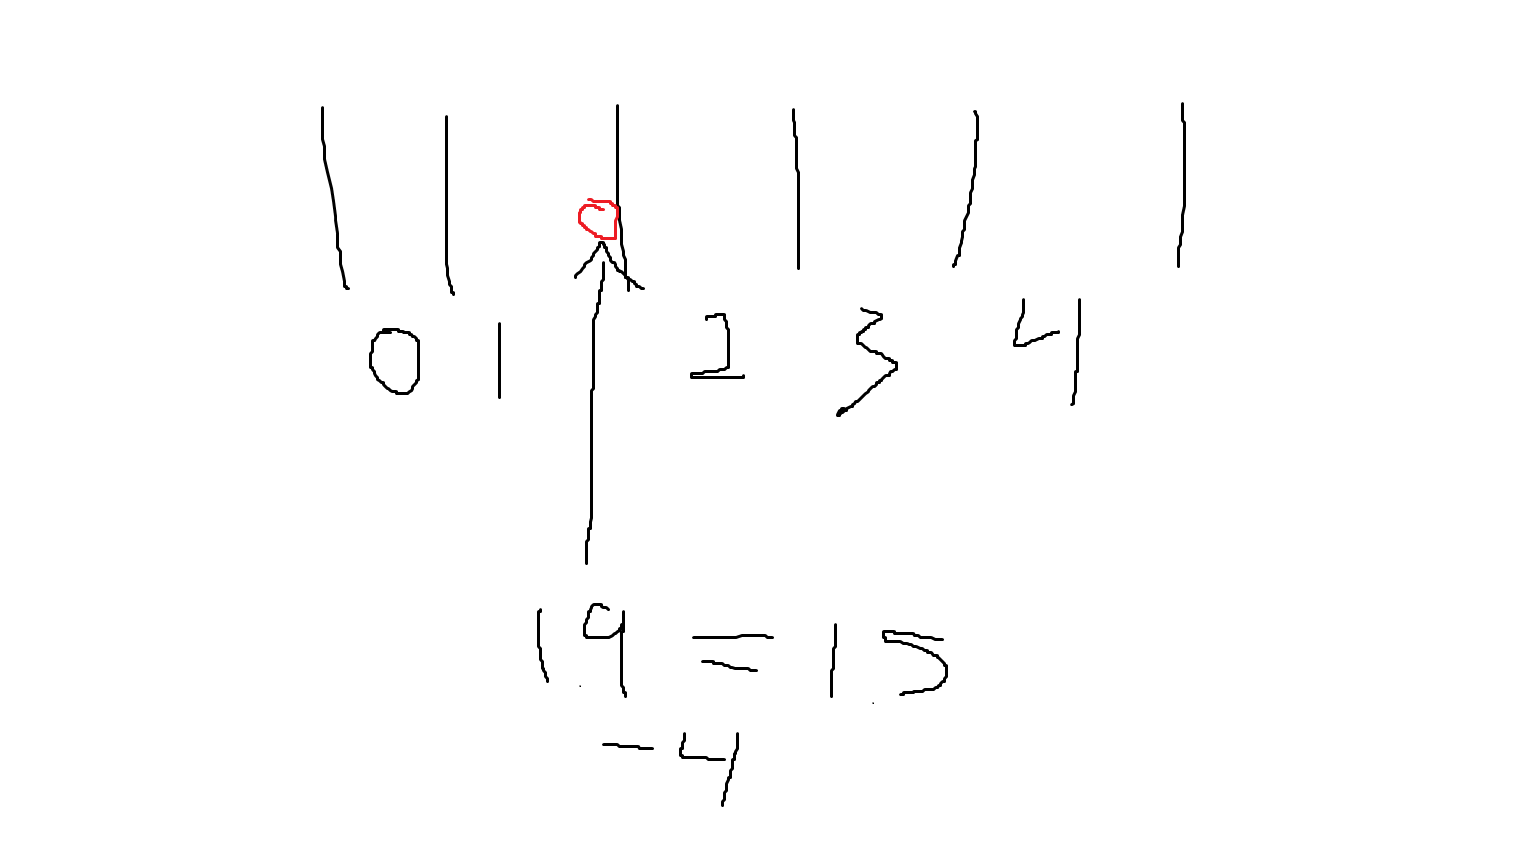 0 1 2 3 4
1.9 = 1.5
-4